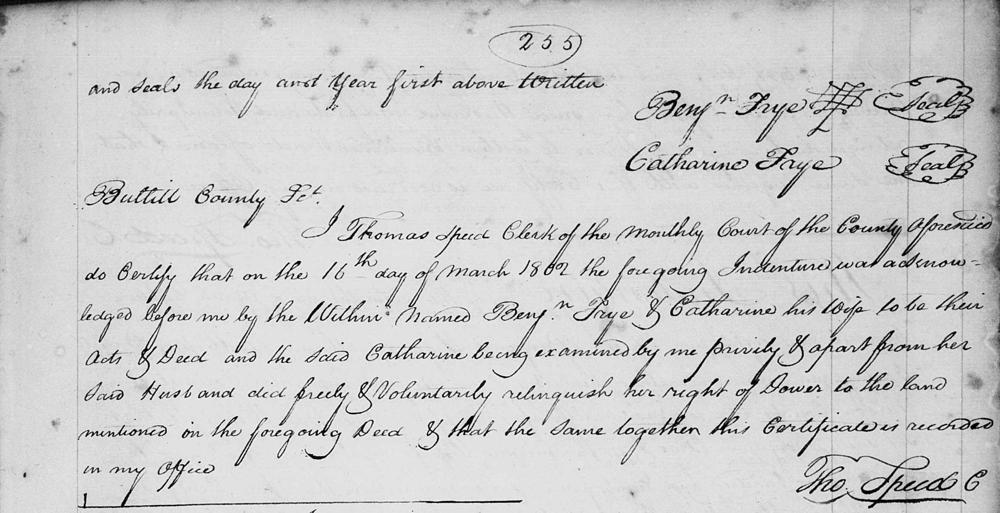 255
and seals the day and Year first above Written
Benjn Frye Seal
Catharine Frye Seal
Bullitt County Sct.
I Thomas Speed Clerk of the Monthly Court of the County aforesaid
do Certify that on the 16th day of March 1802 the foregoing Indenture was acknow=
ledged before me by the Within Named Benjn Frye & Catharine his Wife to be their
Acts & Deed and the said Catharine being examined by me privily & apart from her
said Husband did freely & Voluntarily relinquish her right of Dower to the land
mentioned in the foregoing Deed & that the same together this Certificate is recorded
in my Office
Tho. Speed C